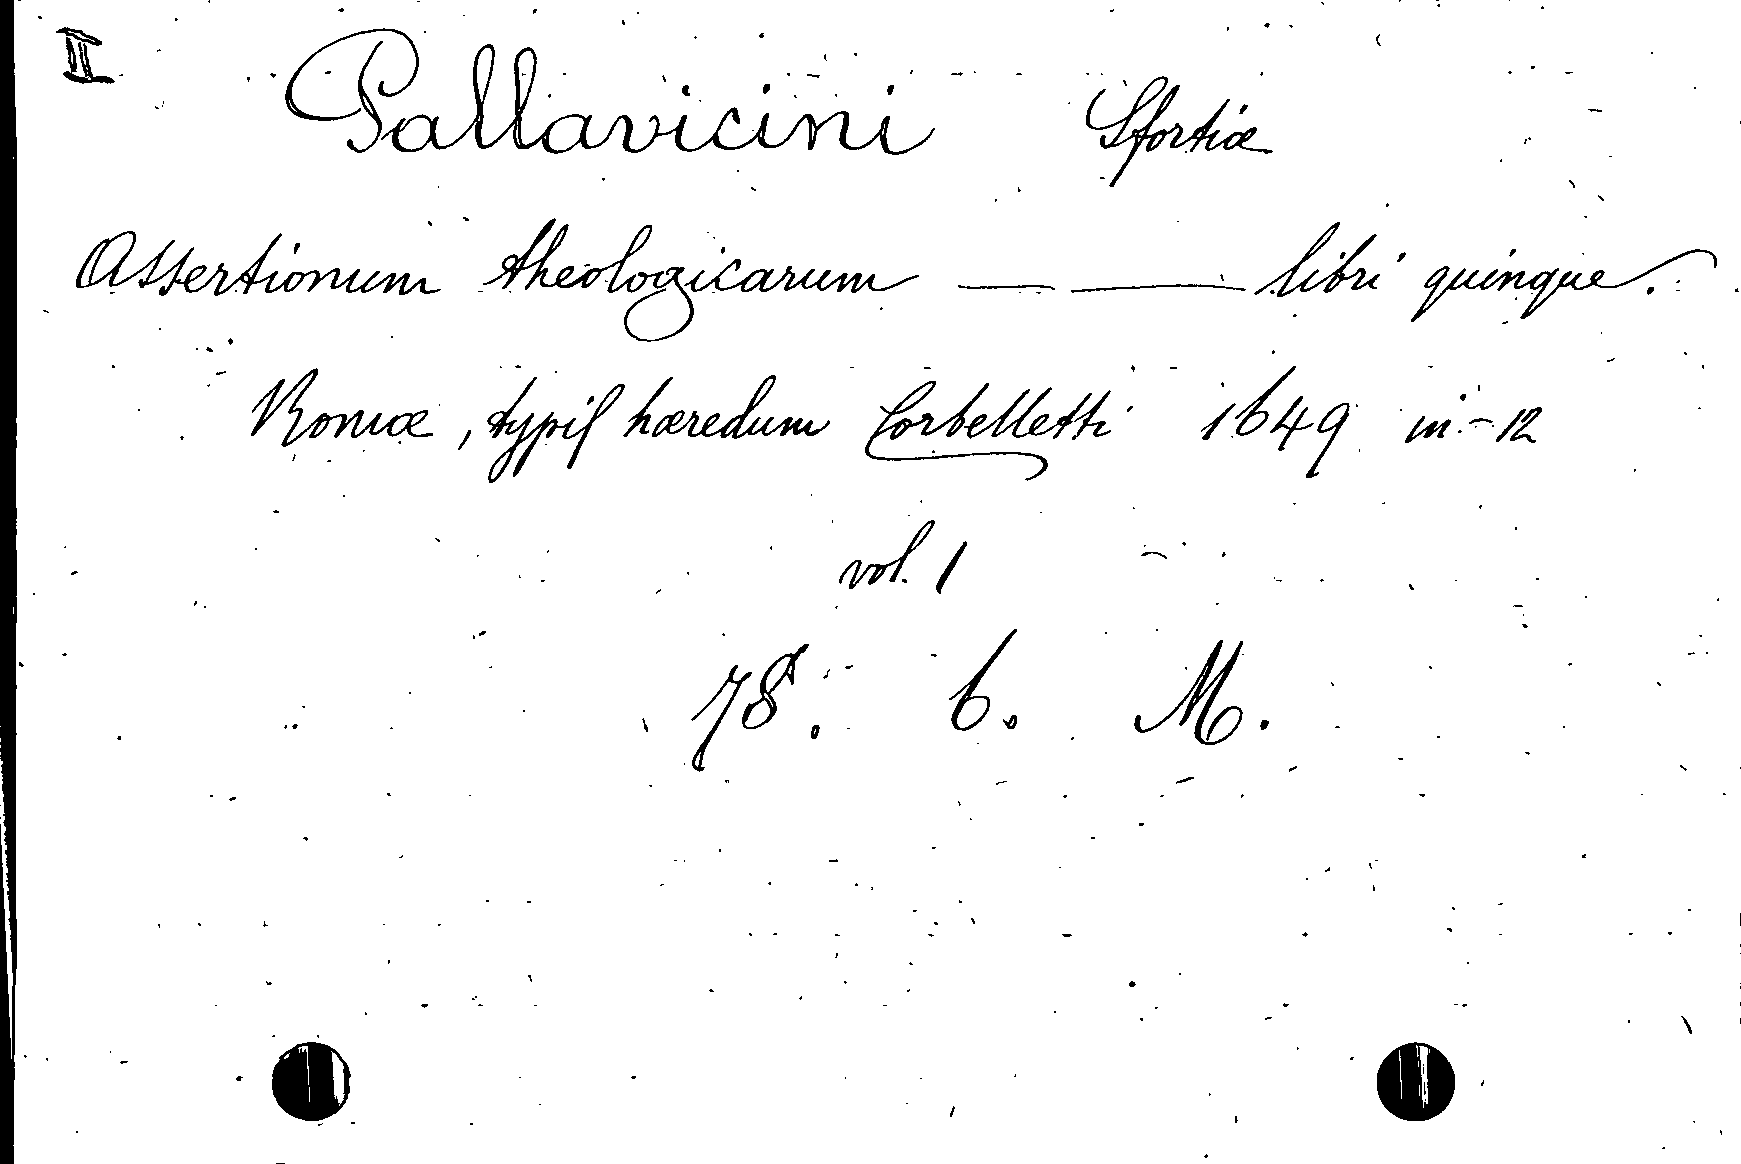 II
Pallavicini Sfortiæ
Assertionum theologicarum — — libri quinque.
Romæ, typis hæredum Corbelletti 1649 in-12
vol. 1
78. 6. M.